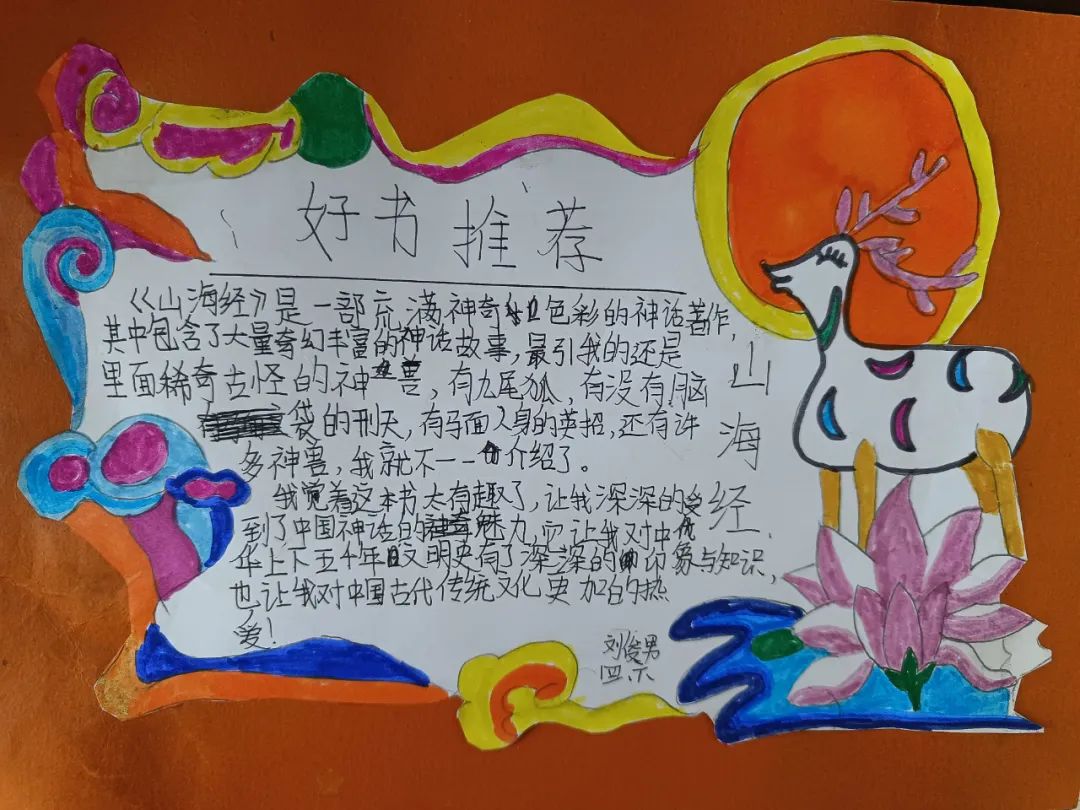 好书推荐
《山海经》是一部充满神奇幻色彩的神话著作,
其中包含了大量奇幻丰富的神话故事,最引我的还是
里面稀奇古怪的神兽,有九尾狐,有没有脑
袋的刑天,有马面人身的英招,还有许
多神兽,我就不一一介绍了。
我觉着这本书太有趣了,让我深深的受
到了中国神话的魅力,让我对中
华上下五千年文明史有了深深的印象与知识,
也让我对中国古代传统文化更加的热
爱!
刘俊男
四、六
山海经